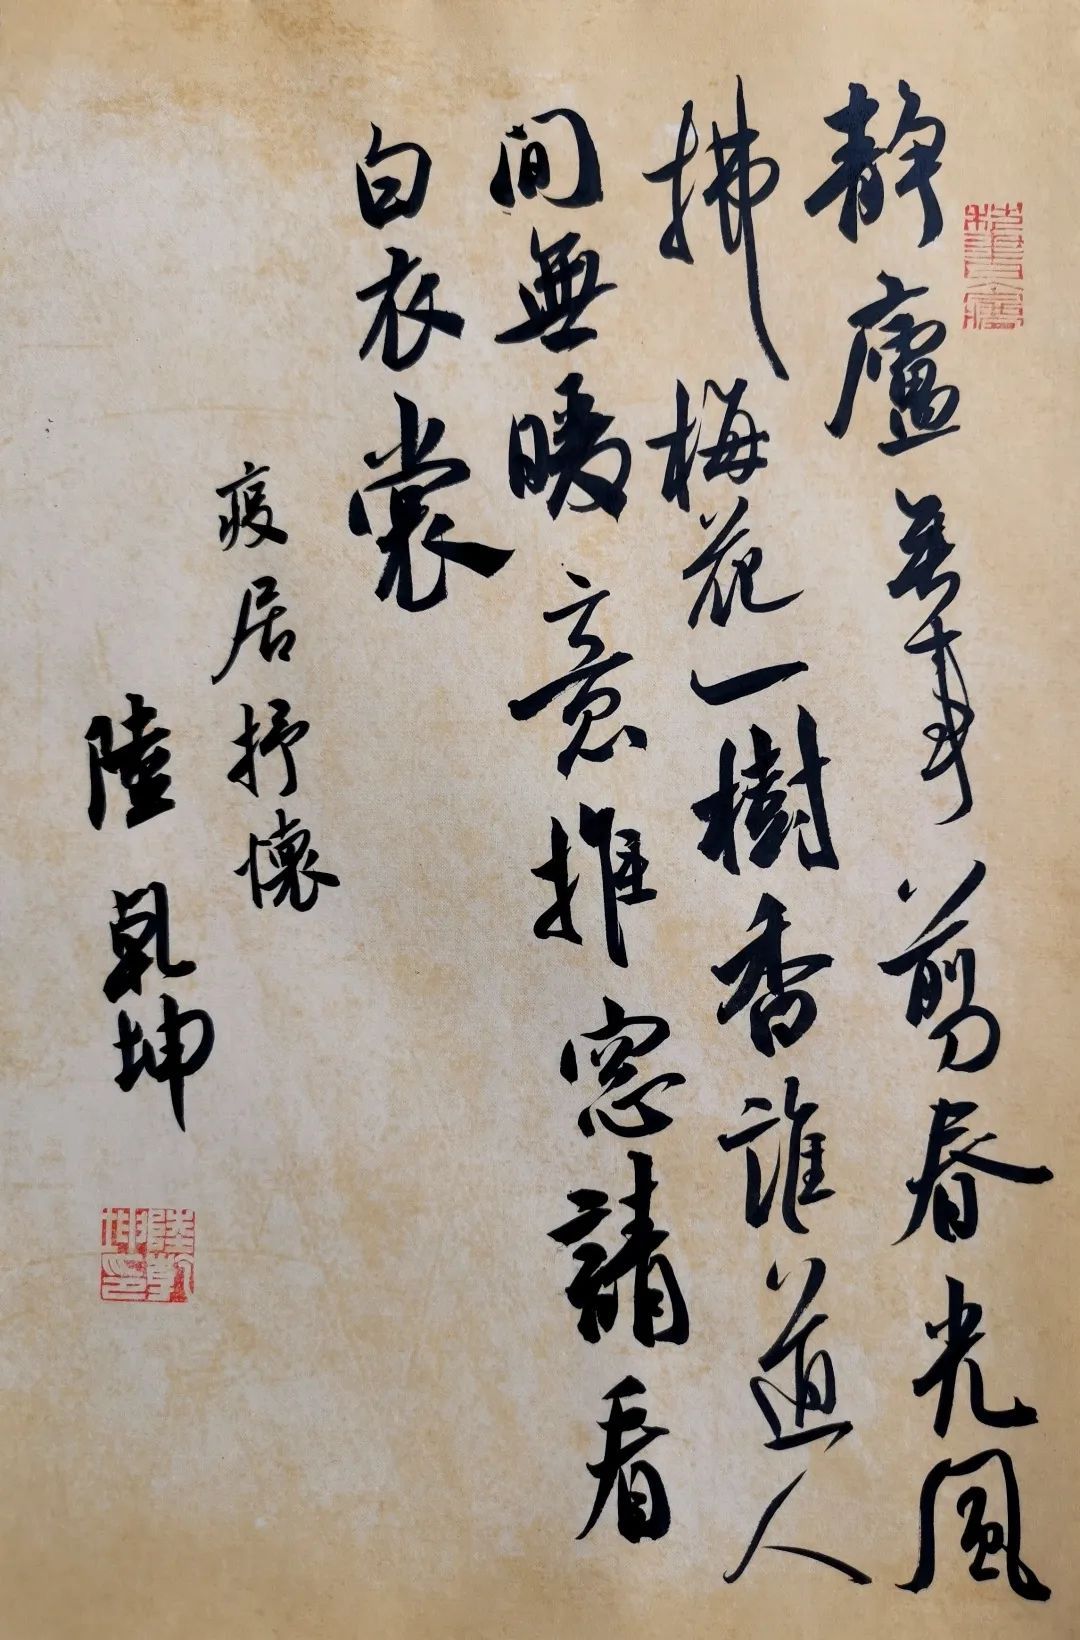 靜廬無事剪春光風
拂梅花一樹香誰道人
間無暖意推窓請看
白衣裳
疫居抒懷
陸乾坤
陸乾坤印